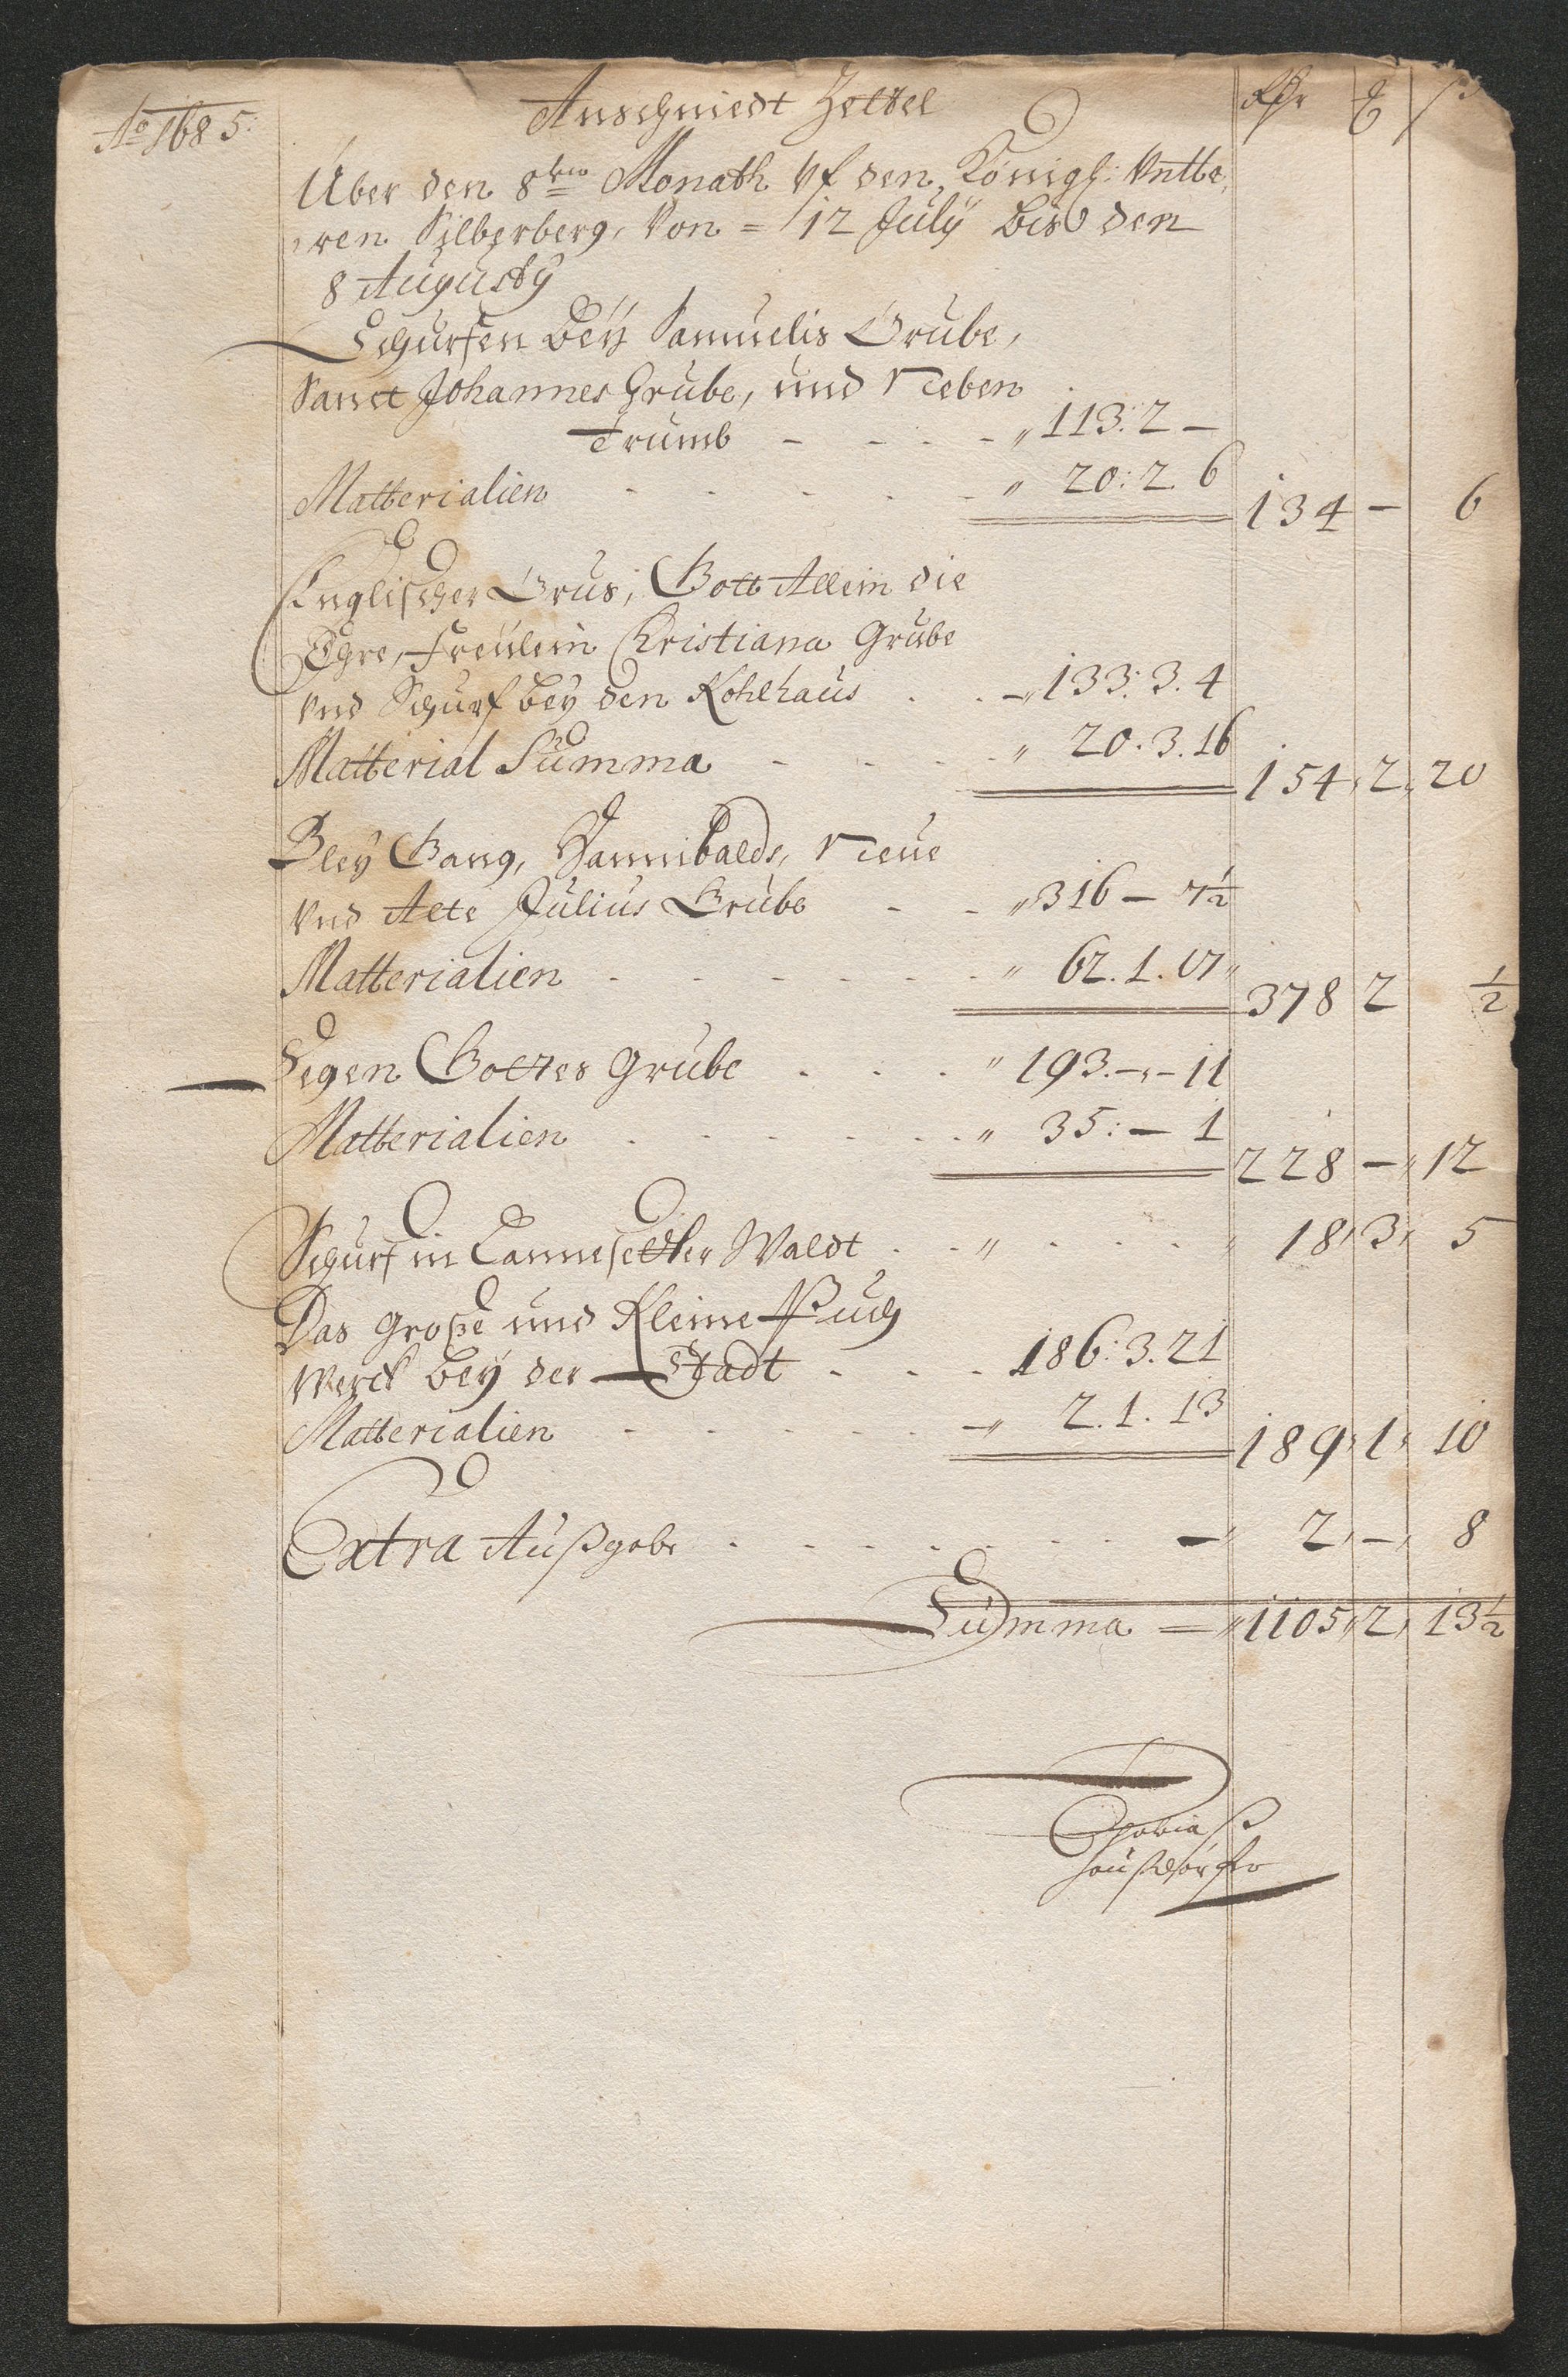 Ao 1685:
Anschniedt Zettel
Über den 8ten Monath Vf den Königl: Vntte,
,ren Silberberg, Von = 12 Julÿ bis den
8 Augustÿ
Schurfen beÿ Samuelis Grube,
Sanct Johannes Grube, und Neben
Trumb - - - - „ 113: 2 -
Matterialien - - - - „ 20: 2. 6 134 - 6
Englischer Grus, Gott Allein die
Ehre, Freülein Christiana Grube
Vnd Schurf beÿ den Kohlhaus . . - „ 133: 3. 4
Matterial Summa - - - - „ 20. 3. 16 154, 2, 20
Bleÿ Gang, Hannibalds, Neue
Vnd Alte Julius Grube - - „ 316 - 7½
Matterialien - - - - - - „ 62. 1. 17 „ 378 2 ½
Segen Gottes Grube . . . „ 193. -,- 11
Matterialien . . . . . „ 35: - 1 228 - „ 12
Schurf in Waldt . - „ . . . „ 18, 3, 5
Das Große und Kleine Puch
Werck beÿ der Stadt - - - 186: 3. 21
Matterialien - - - - - - „ 2. 1. 13 189, 1, 10
Extra Außgabe . . . . . . . - „ 2, -, 8
Summa = „ 1105, 2, 13½